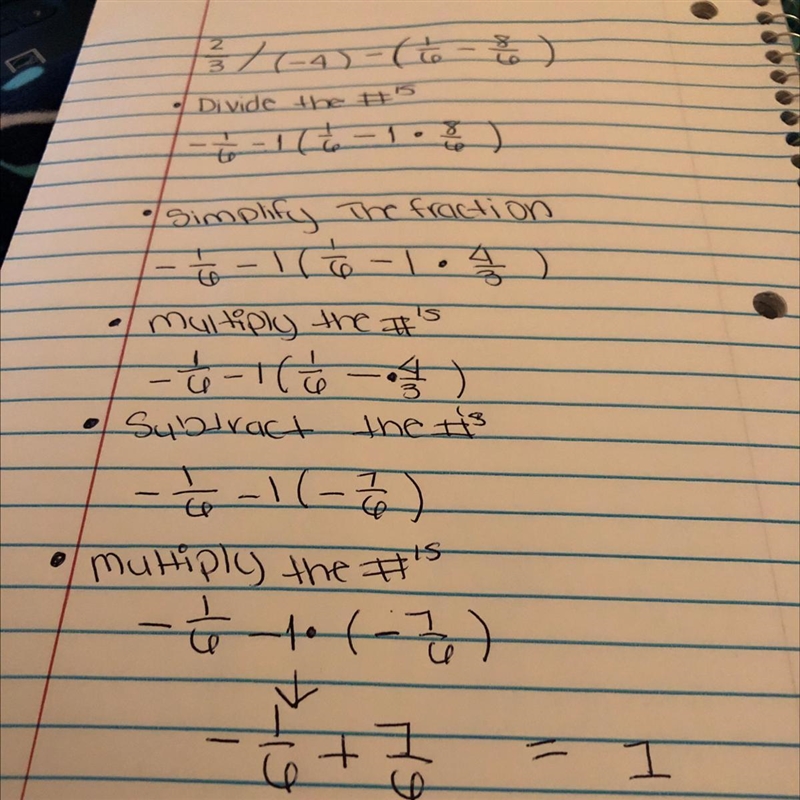 2/3 / (-4) - (1/6 - 8/6)
• Divide the #'s
-1/6 - 1(1/6 - 1 • 8/6)
• simplify The fraction
-1/6 - 1(1/6 - 1 • 4/3)
• multiply the #'s
-1/6 - 1(1/6 - •4/3)
• Subtract the #'s
-1/6 - 1(-7/6)
• multiply the #'s
-1/6 - 1• (-7/6)
↓
-1/6 + 7/6 = 1